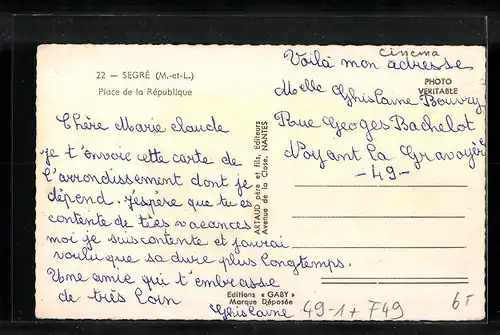 22 — SEGRÉ (M.-et-L.)
Place de la République
Chère Marie claude
je t'envoie cette carte de
l'arrondissement dont je
dépend. j'espère que tu es
contente de tes vacances
moi je suis contente et j'aurai
voulu que sa dure plus longtemps.
Une amie qui t'embrasse
de très loin
Ghislaine
ARTAUD père et fils, Editeurs
Avenue de la Close, NANTES
Editions « GABY »
Marque Déposée
cinema
Voilà mon adresse
PHOTO
VERITABLE
Melle Ghislaine Bouvry
Rue Georges Bachelot
Noyant la Gravoyère
-49-
49-1+F49